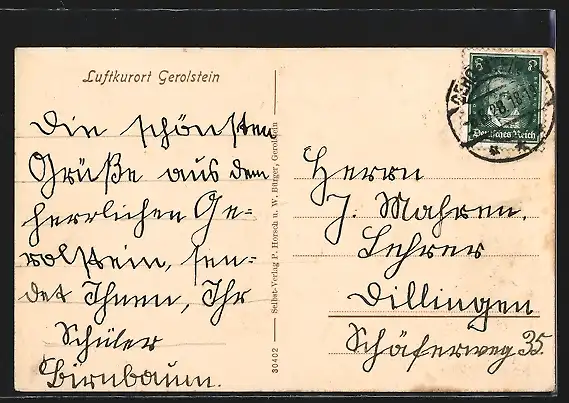 Luftkurort Gerolstein
Die schönsten
Grüße aus dem
herrlichen Ge-
rolstein, sen-
det Ihnen, Ihr
Schüler
Birnbaum.
30402 — Selbst-Verlag P. Horsch u. W. Bürger, Gerolstein
Deutsches Reich
Herrn
J. Mahren,
Lehrer
Dillingen
Schäferweg 35.